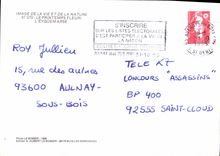 IMAGE DE LA VIE ET DE LA NATURE
LE PRINTEMPS FLEURI
S'INSCRIRE
SUR LES LISTES ELECTORALES
C'EST PARTICIPER A LA VIE DE
LA NATION
Roy Jullien
15, rue des aulnes
93600 AULNAY-
SOUS-BOIS
TELE K7
CONCOURS "ASSASSINS"
BP 400
92555 SAINT-CLOUD